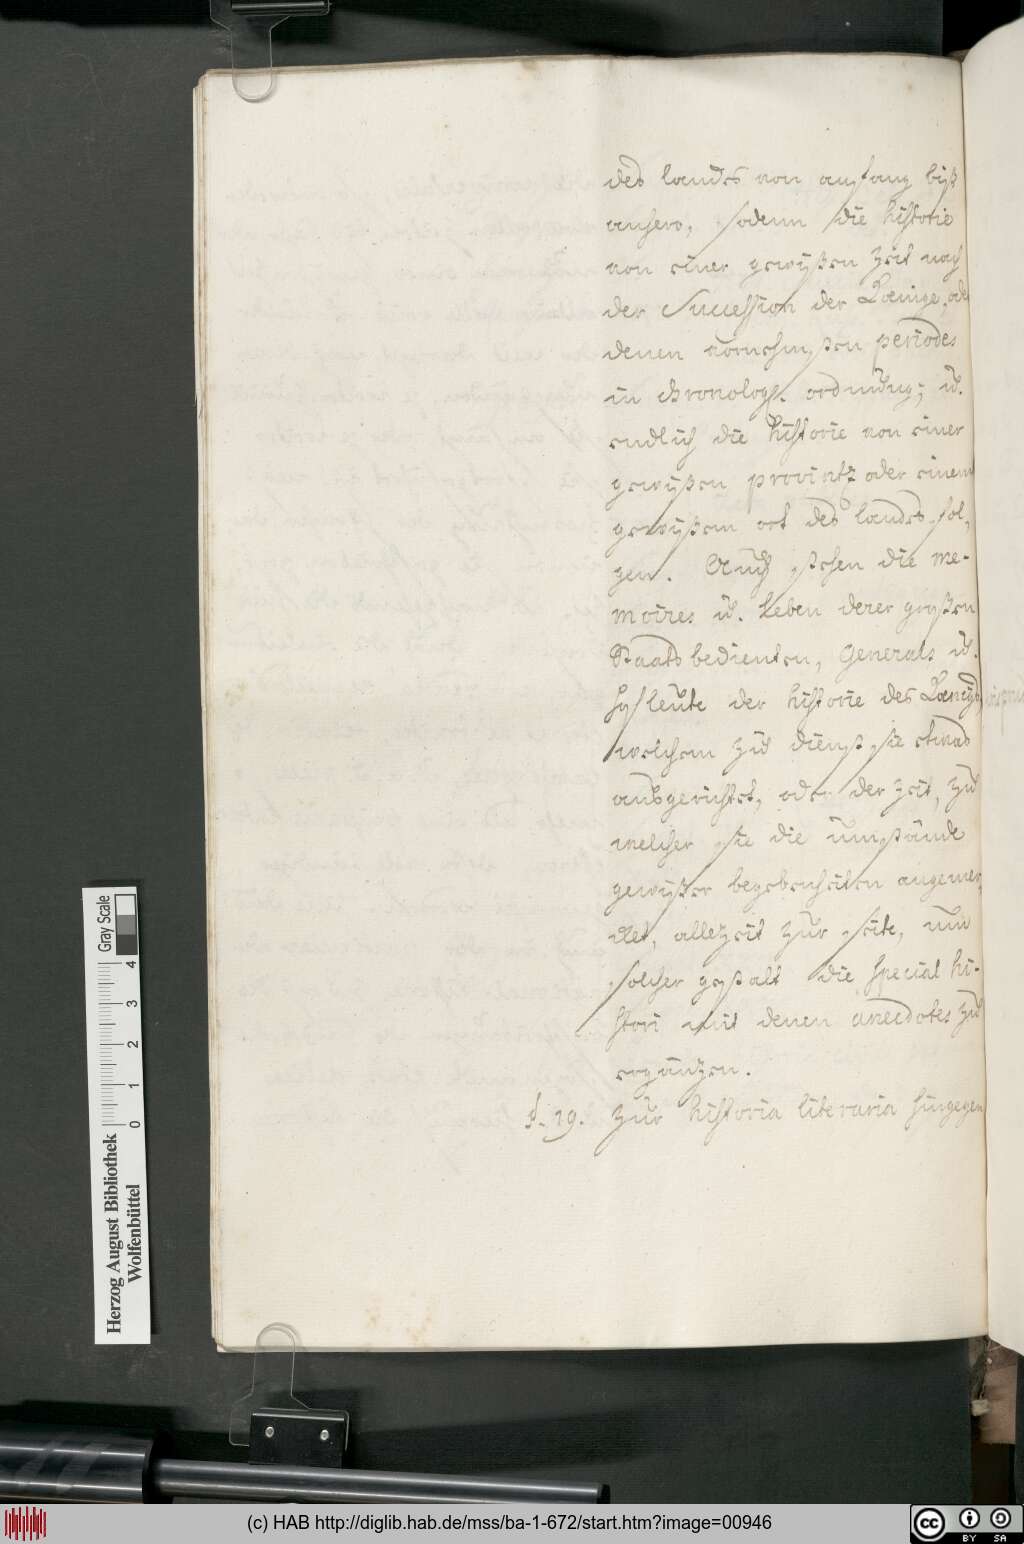 des landes von anfang biß
anhero, sodenn die historie
von einer gewißen Zeit nach
der Succession der Koenige, oder
denen vornehmsten periodes
in chronolog. ordnung; ü.
endlich die historie von einer
gewißen provintz oder einem
gewißem ort des landes fol,
gen. Auch stehen die me-
moires ü. Leben derer großen
Staatsbedienten, Generals ü.
hofleute der historie des Koenigs,
welchem zu dienst sie etwas
ausgerichtet, oder der zeit, zu
welcher sie die umstände
gewißer begebenheiten angemer,
cket, allezeit zur seite, um
solcher gestalt die special hi-
stori mit denen anecdotes zu
ergäntzen.
§. 19. Zur historia literaria hingegen
Gray Scale
4
3
2
1
0
Herzog August Bibliothek
Wolfenbüttel
(c) HAB http://diglib.hab.de/mss/ba-1-672/start.htm?image=00946
cc
BY SA